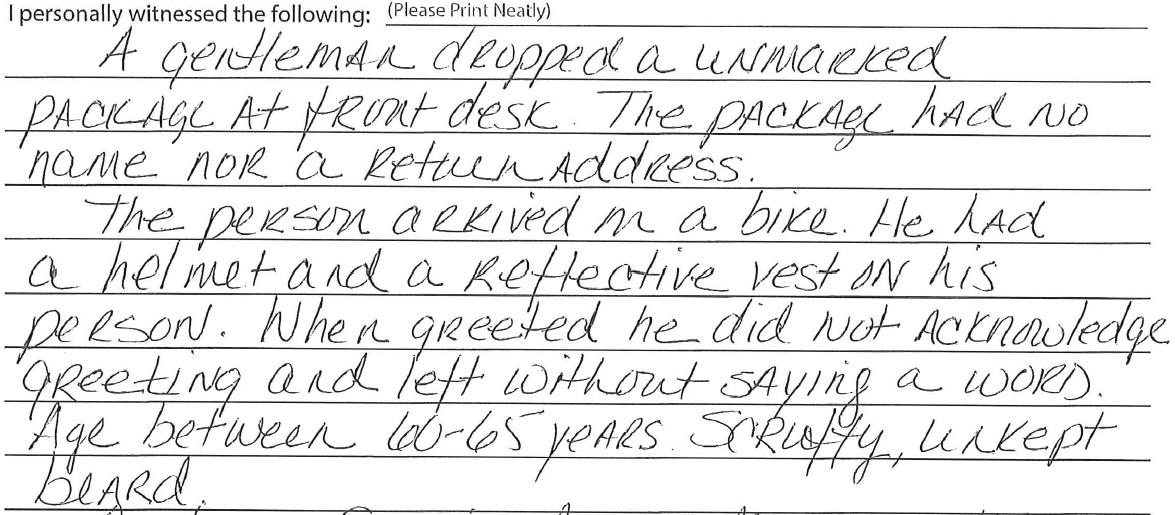 I personally witnessed the following: (Please Print Neatly)
A gentleman dropped a unmarked
package at front desk. The package had no
name nor a return address.
The person arrived on a bike. He had
a helmet and a reflective vest on his
person. When greeted he did not acknowledge
greeting and left without saying a word.
Age between 60-65 years. Scruffy, unkept
beard.